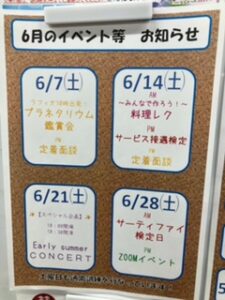 6月のイベント等 お知らせ
6/7(土)
プラネタリウム
鑑賞会
PM
定着面談
6/14(土)
AM
〜みんなで作ろう!〜
料理レク
PM
サービス接遇検定
PM
定着面談
6/21(土)
【スペシャル企画】
Early summer
CONCERT
6/28(土)
AM
サーティファイ
検定日
PM
ZOOMイベント